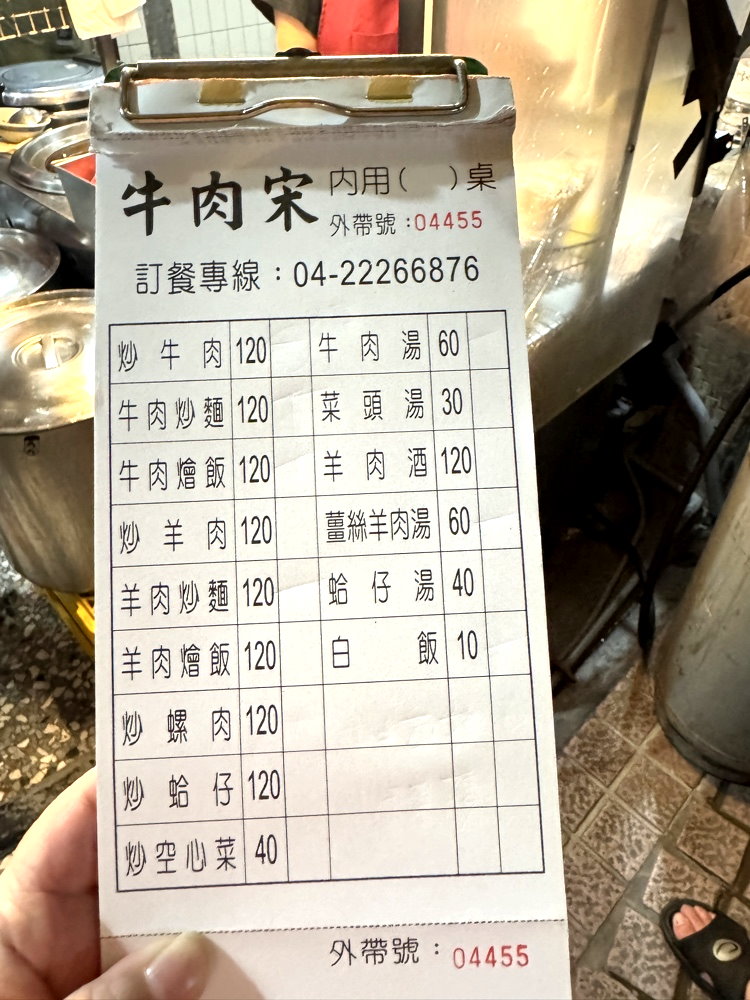 牛肉宋 內用( )桌
外帶號:04455
訂餐專線:04-22266876
炒牛肉 120 牛肉湯 60
牛肉炒麵 120 菜頭湯 30
牛肉燴飯 120 羊肉酒 120
炒羊肉 120 薑絲羊肉湯 60
羊肉炒麵 120 蛤仔湯 40
羊肉燴飯 120 白飯 10
炒螺肉 120
炒蛤仔 120
炒空心菜 40
外帶號:04455